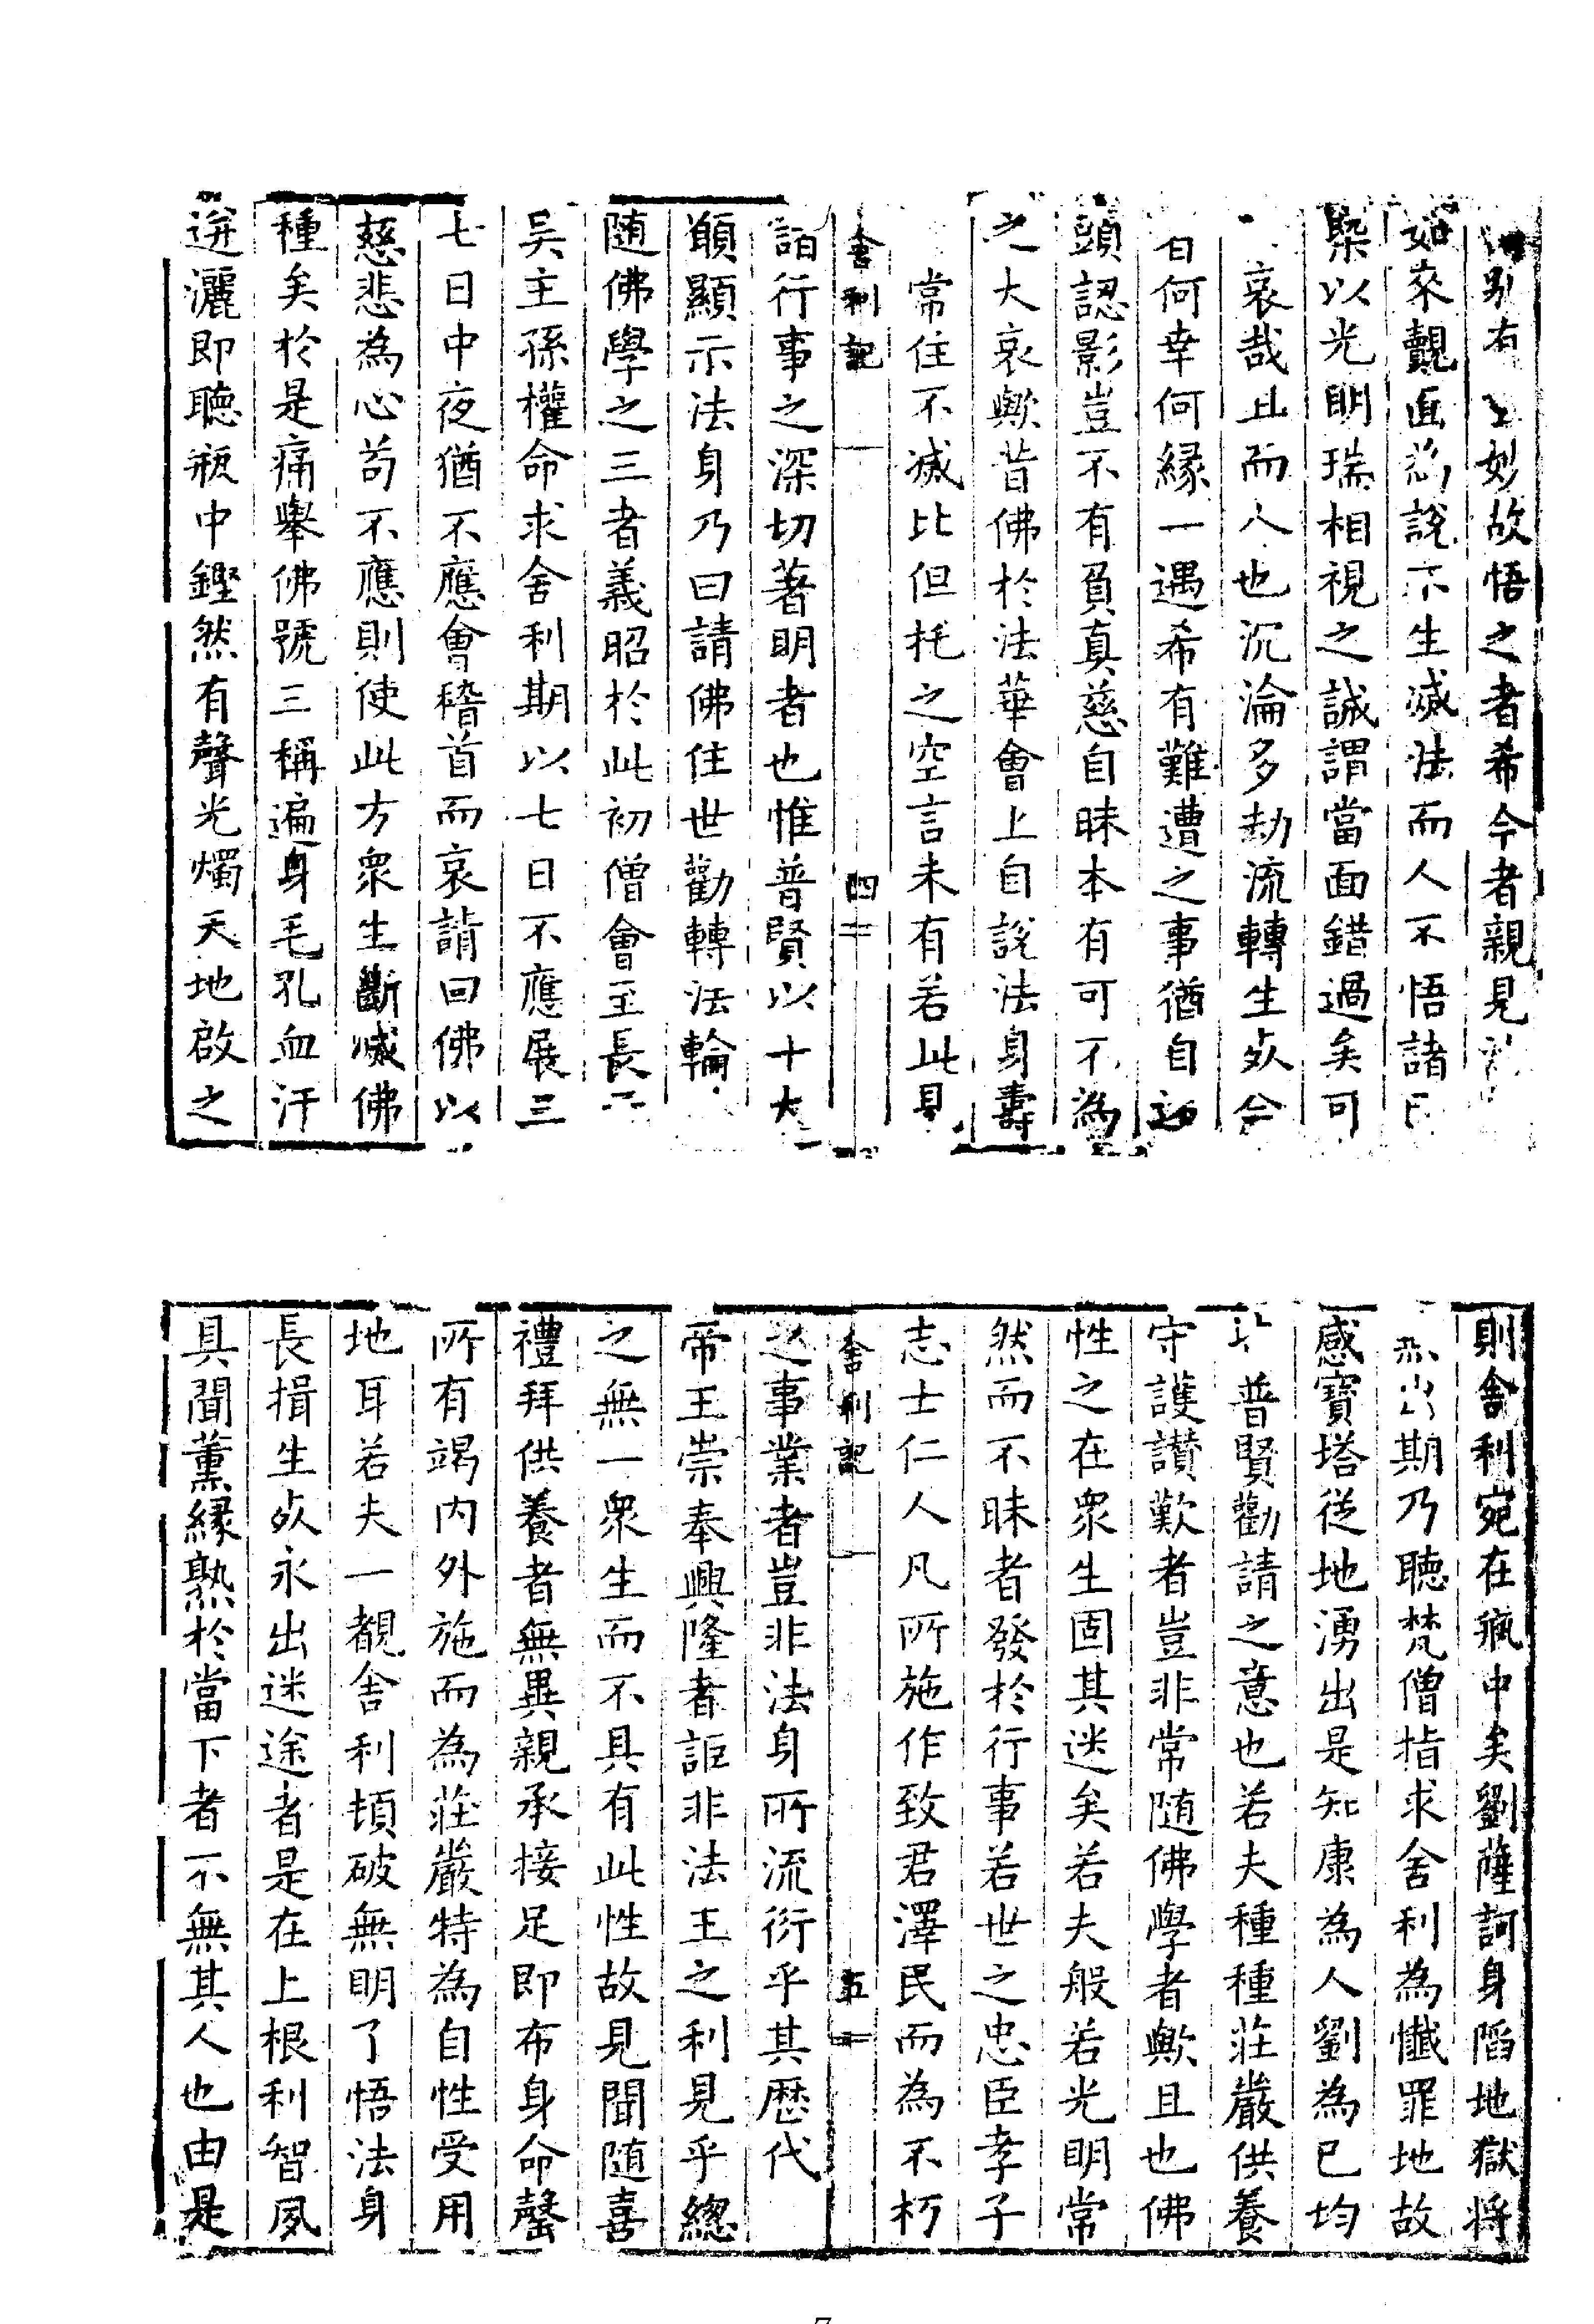 別有 妙故悟之者希今者親見
如來覿面為說不生滅法而人不悟諸
槩以光明瑞相視之誠謂當面錯過矣可
哀哉且而人也沉淪多劫流轉生死今
者何幸何緣一遇希有難遭之事猶自迷
頭認影豈不有負真慈自昧本有可不為
之大哀歟昔佛於法華會上自說法身壽
常住不滅比但托之空言未有若此見
舍利記 四
諸行事之深切著明者也惟普賢以十大
願顯示法身乃曰請佛住世勸轉法輪
隨佛學之三者義昭於此初僧會至長
吳主孫權命求舍利期以七日不應展三
七日中夜猶不應會稽首而哀請曰佛以
慈悲為心苟不應則使此方眾生斷滅佛
種矣於是痛舉佛號三稱遍身毛孔血汗
迸灑即聽瓶中鏗然有聲光燭天地啟之
則舍利宛在瓶中矣劉薩訶身陷地獄將
出期乃聽梵僧指求舍利為懺罪地故
感寶塔從地湧出是知康為人劉為已均
普賢勸請之意也若夫種種莊嚴供養
守護讚歎者豈非常随佛學者歟且也佛
性之在眾生固其迷矣若夫般若光明常
然而不昧者發於行事若世之忠臣孝子
志士仁人凡所施作致君澤民而為不朽
舍利記 五
之事業者豈非法身所流衍乎其歷代
帝王崇奉興隆者詎非法王之利見乎總
之無一眾生而不具有此性故見聞随喜
禮拜供養者無異親承接足即布身命罄
所有竭內外施而為莊嚴特為自性受用
地耳若夫一覩舍利頓破無明了悟法身
長揖生死永出迷途者是在上根利智夙
具聞薰緣熟於當下者不無其人也由是